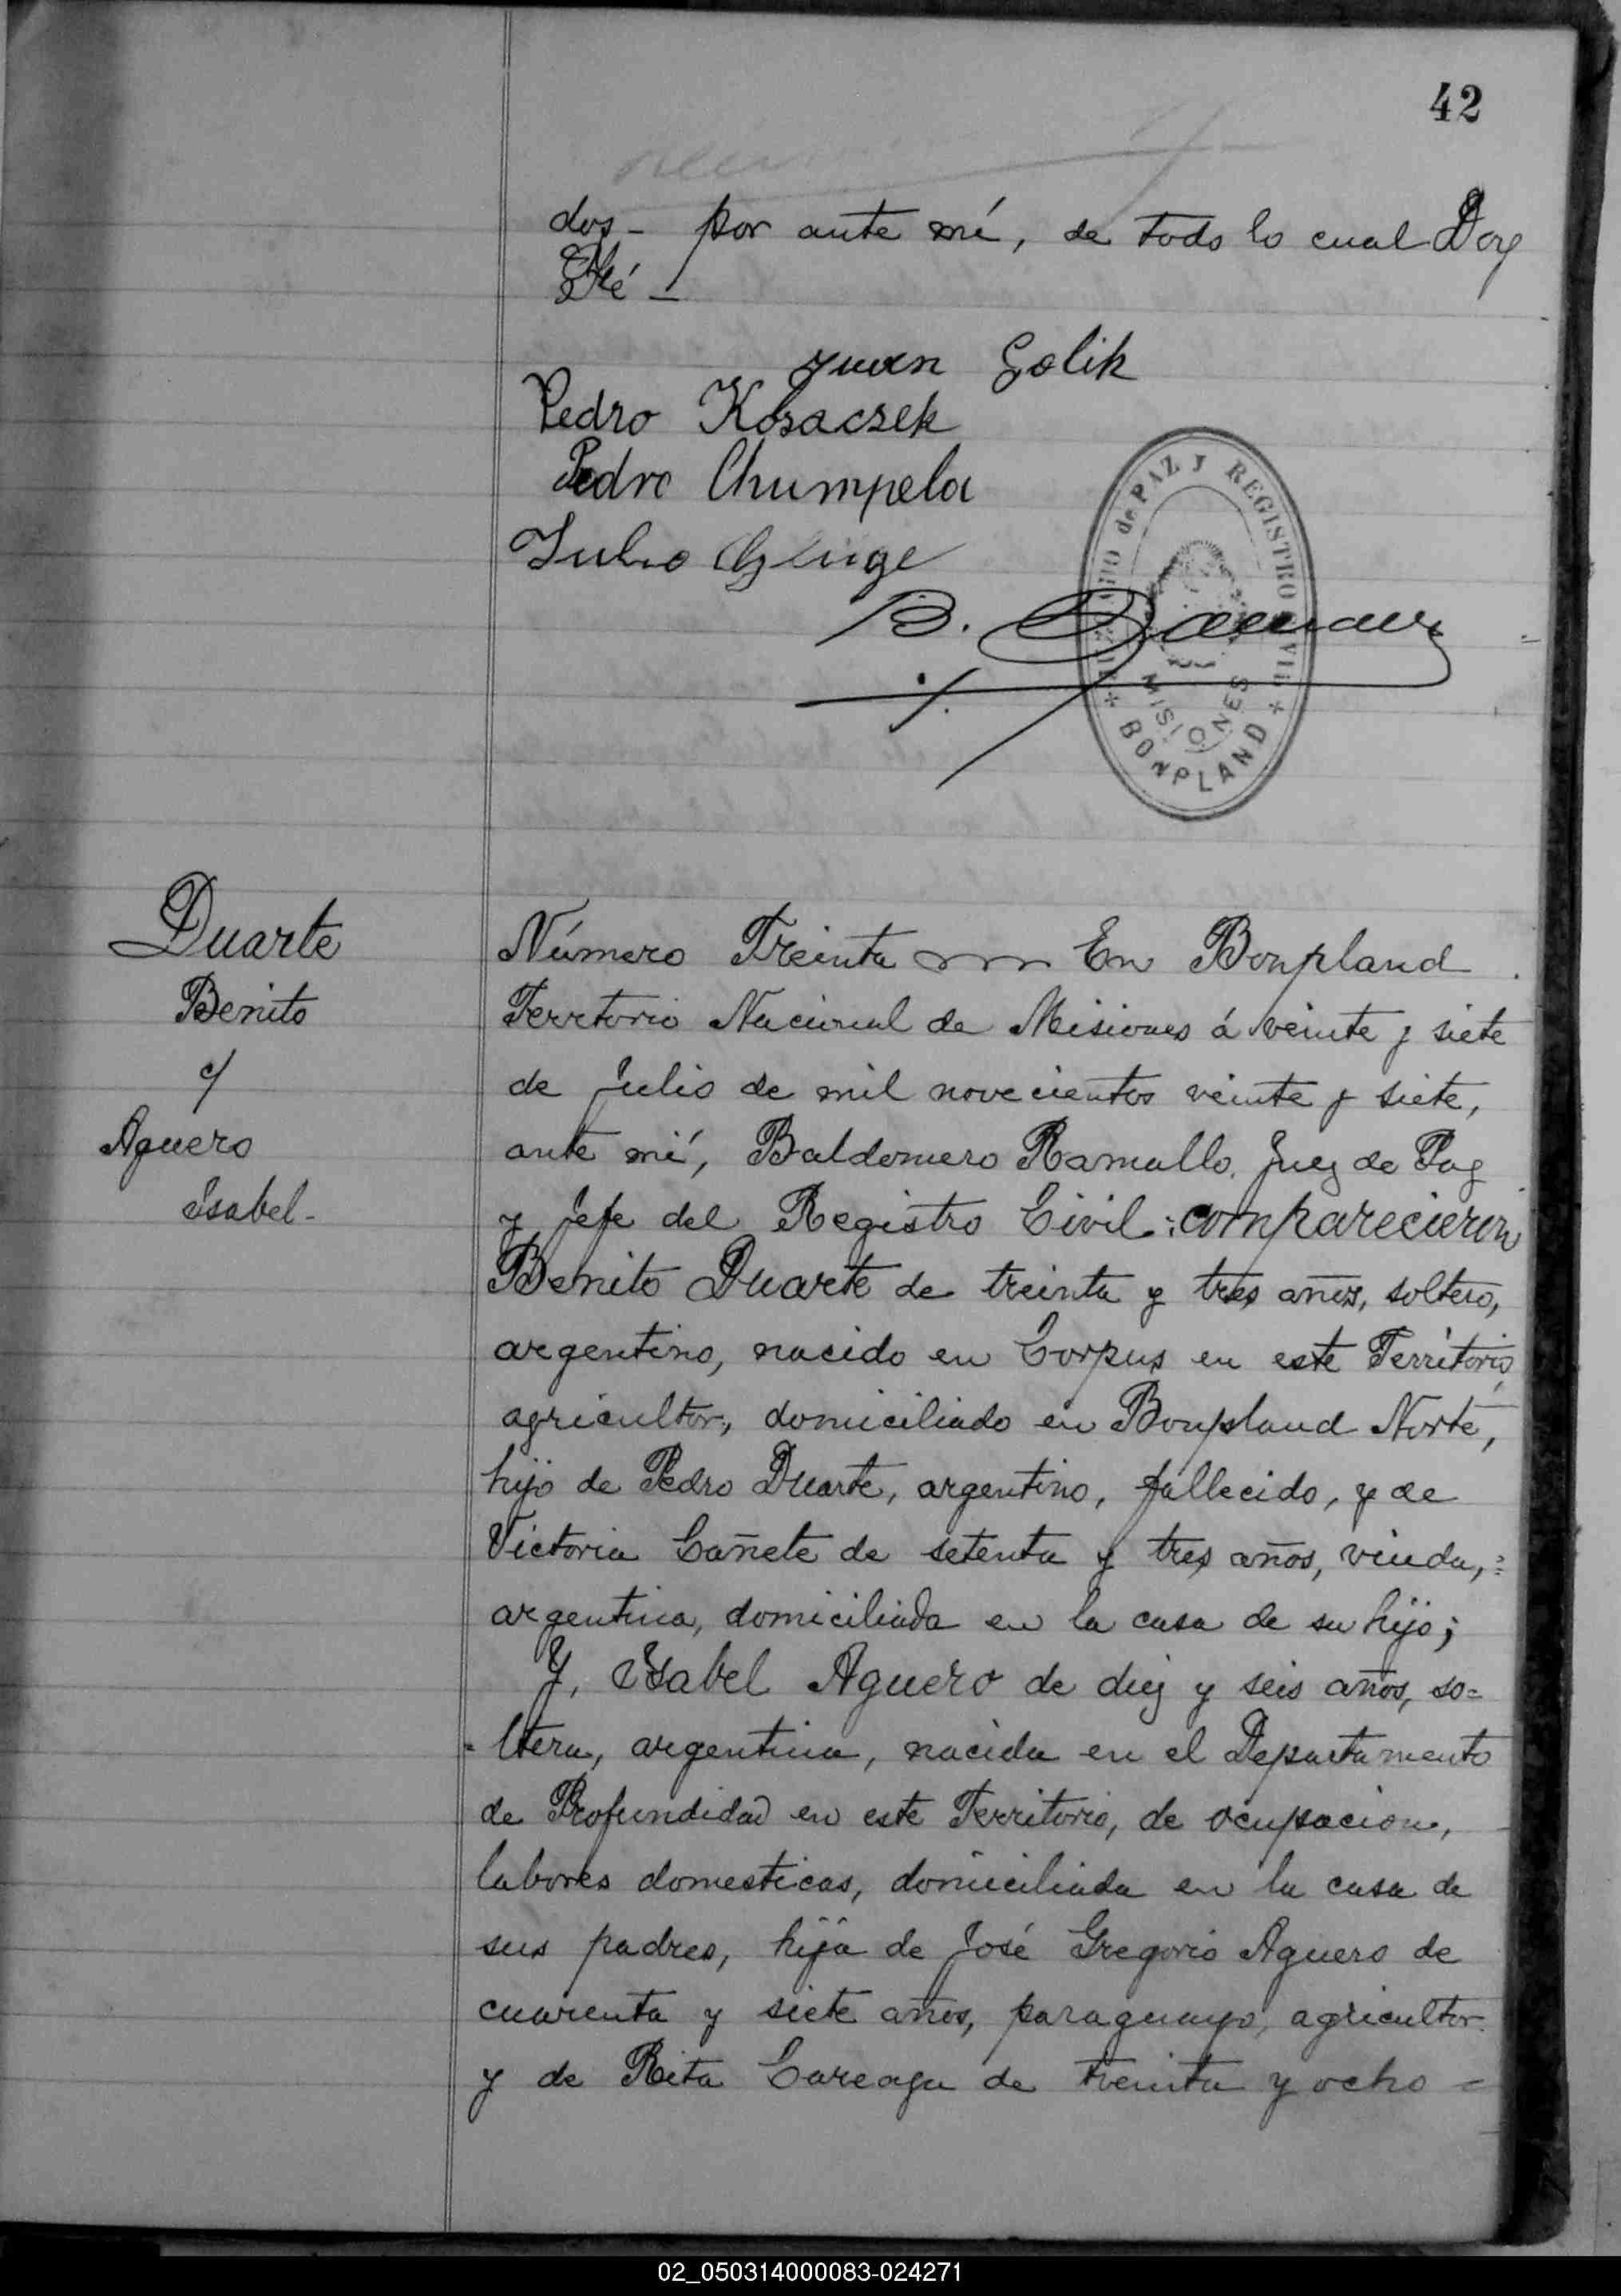 42
dos - por ante mí, de todo lo cual Doy
Fé -
Juan Golik
Pedro Kosaczek
Pedro Chumpela
Julio
B. Ramallo
de PAZ y REGISTRO CIVIL
MISIONES
* BONPLAND *
Duarte
Benito
c/
Aguero
Isabel-
Número Treinta En Bonpland
Terretorio Nacional de Misiones á veinte y siete
de Julio de mil novecientos veinte y siete,
ante mí, Baldomero Ramallo, Juez de Paz
y Jefe del Registro Civil: comparecieron
Benito Duarte de treinta y tres años, soltero,
argentino, nacido en Corpus en este Territorio,
agricultor, domiciliado en Bonpland Norte,
hijo de Pedro Duarte, argentino, fallecido, y de
Victoria Cañete de setenta y tres años, viuda,=
argentina, domiciliada en la casa de su hijo;
Y, Isabel Aguero de diez y seis años, so=
=ltera, argentina, nacida en el Departamento
de Profundidad en este Territorio, de ocupacion,
labores domesticas, domiciliada en la casa de
sus padres, hija de José Gregorio Aguero de
cuarenta y siete años, paraguayo, agricultor
y de Rita Careaga de treinta y ocho =
02_050314000083-024271